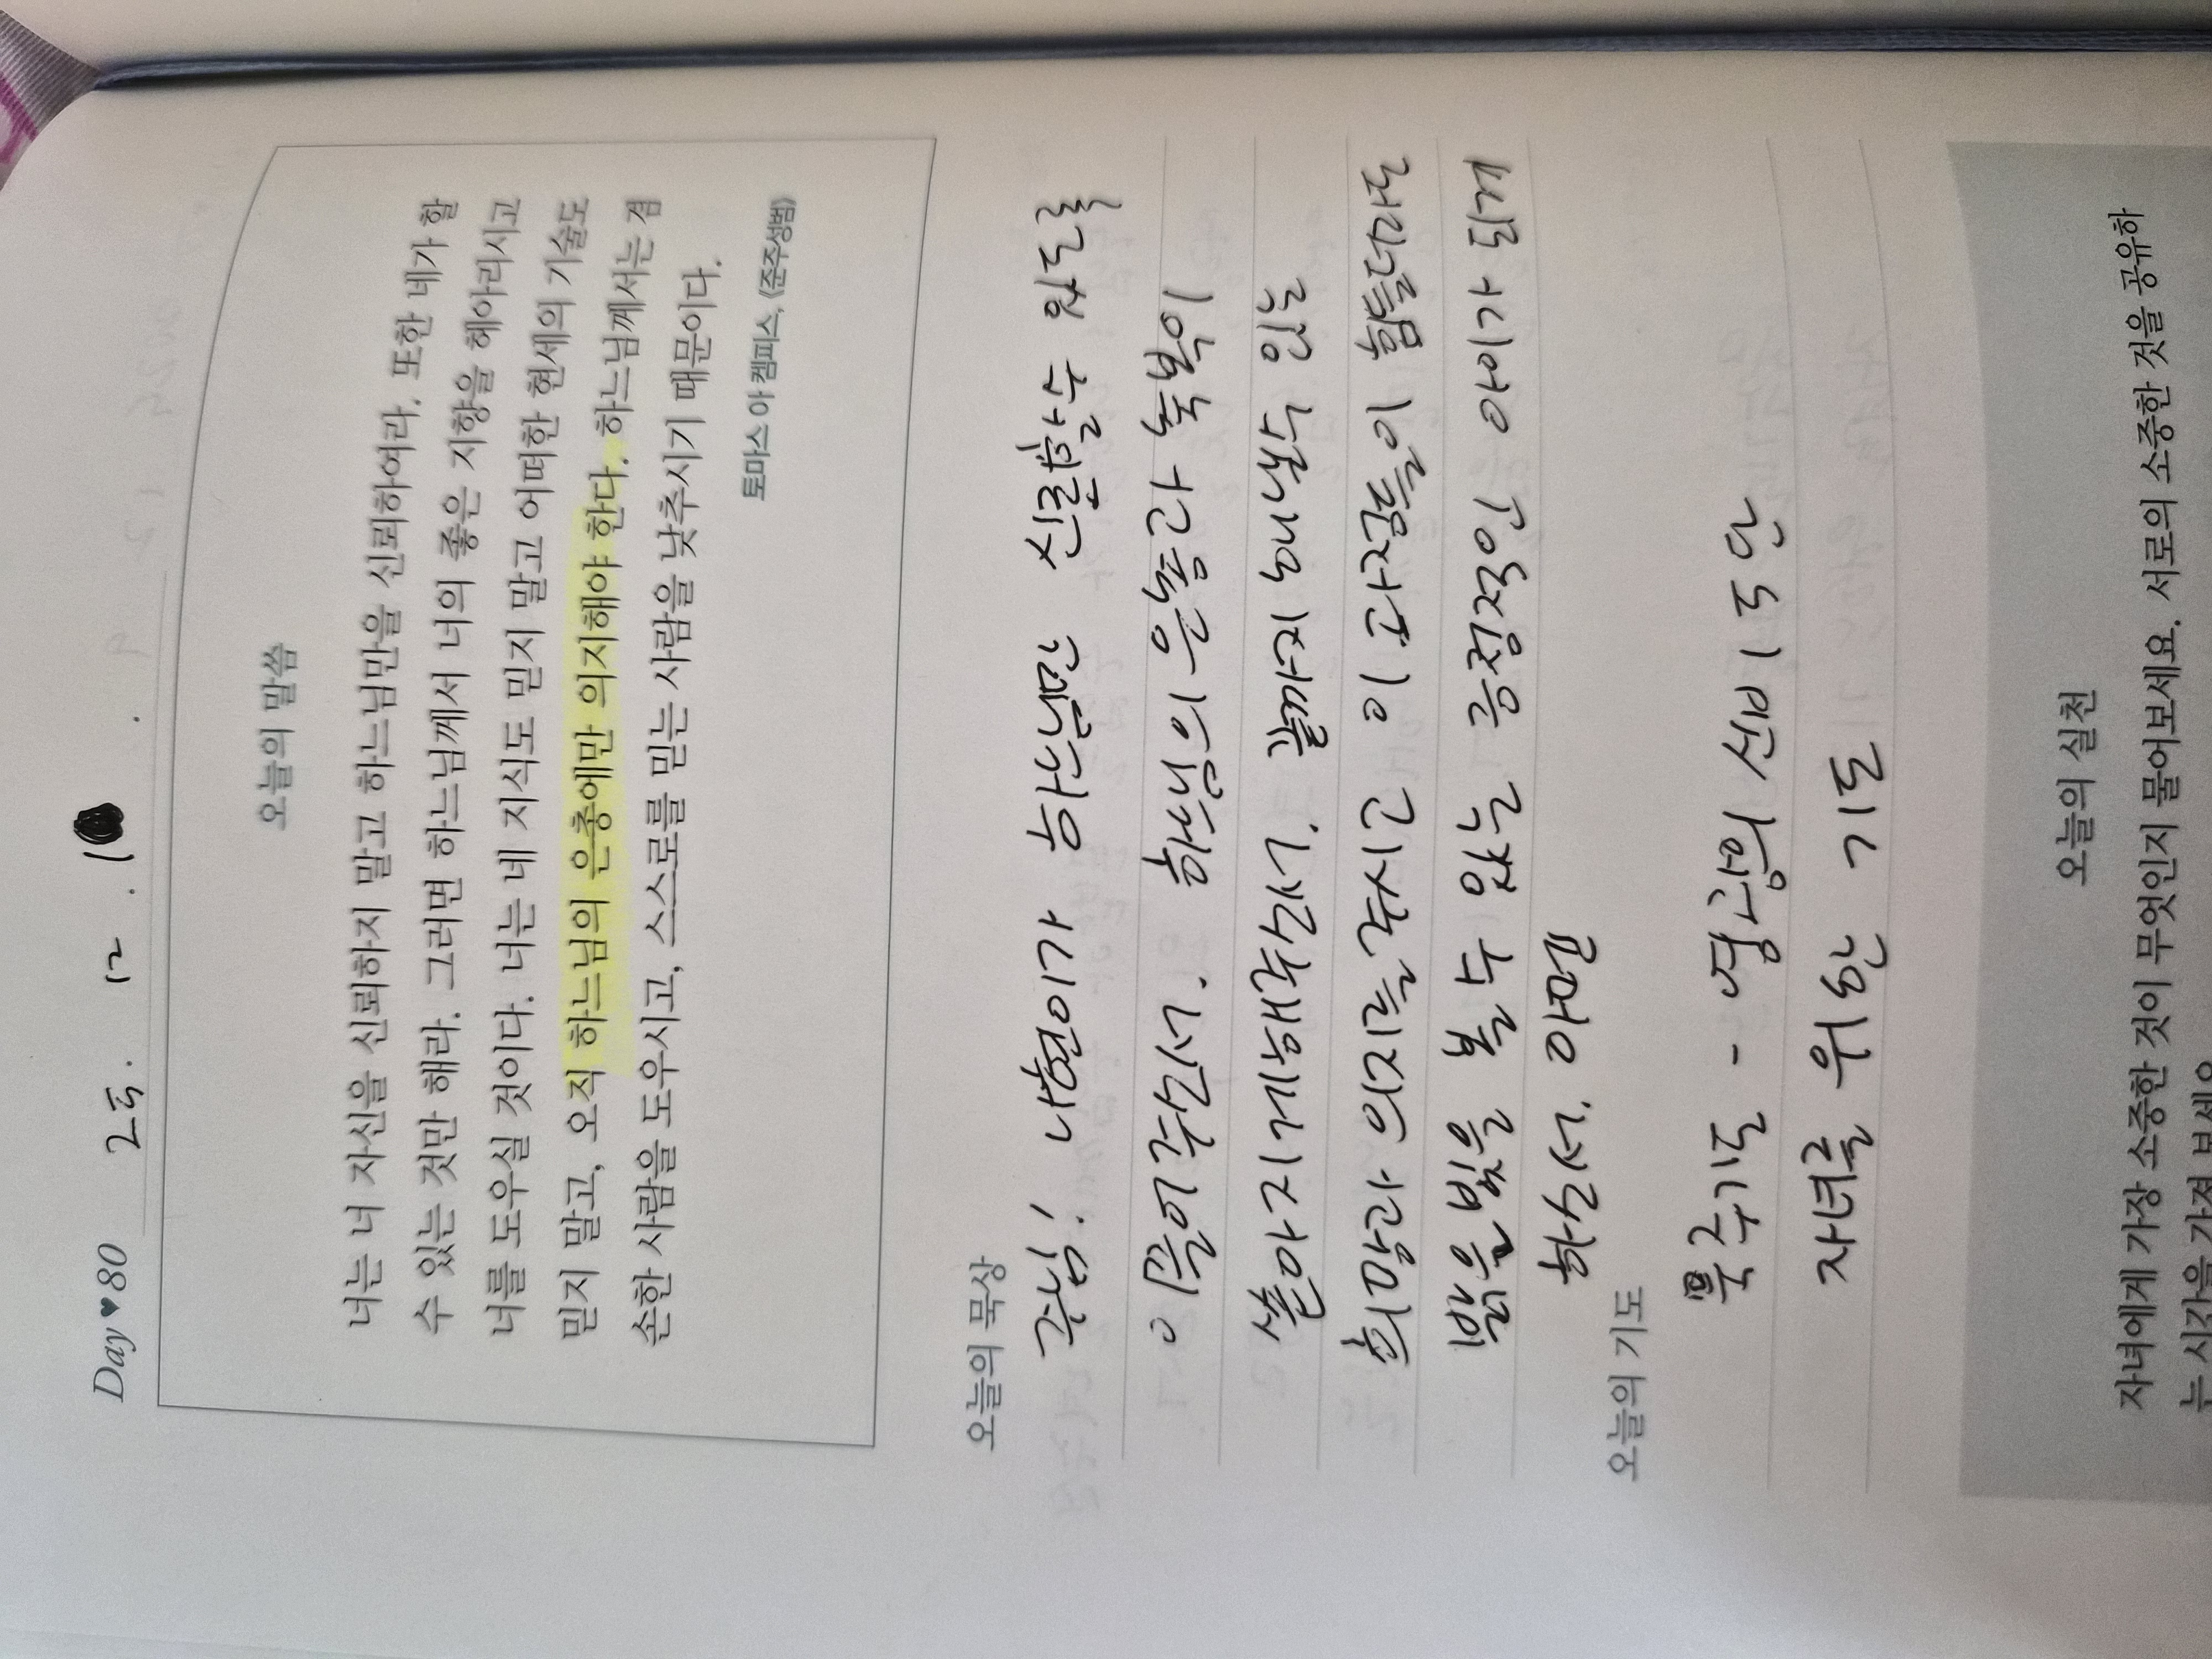 Day♥80 25. 12. 1
오늘의 말씀
너는 너 자신을 신뢰하지 말고 하느님만을 신뢰하여라. 또한 네가 할
수 있는 것만 해라. 그러면 하느님께서 너의 좋은 지향을 헤아리시고
너를 도우실 것이다. 너는 네 지식도 믿지 말고 어떠한 현세의 기술도
믿지 말고, 오직 하느님의 은총에만 의지해야 한다. 하느님께서는 겸
손한 사람을 도우시고, 스스로를 믿는 사람을 낮추시기 때문이다.
토마스 아 켐피스, 《준주성범》
오늘의 묵상
주님! 나현이가 하느님만 신뢰할수 있도록
이끌어주소서. 하느님의 은총과 축복이
쏟아지게해주소서. 끝까지 해낼수 있는
희망과 의지를주시고 이 과정들이 힘들더라도
밝은빛을 볼 수 있는 긍정적인 아이가 되게
하소서. 아멘
오늘의 기도
묵주기도 - 영광의 신비 5단
자녀를 위한 기도
오늘의 실천
자녀에게 가장 소중한 것이 무엇인지 물어보세요. 서로의 소중한 것을 공유하
는 시간을 가져 보세요